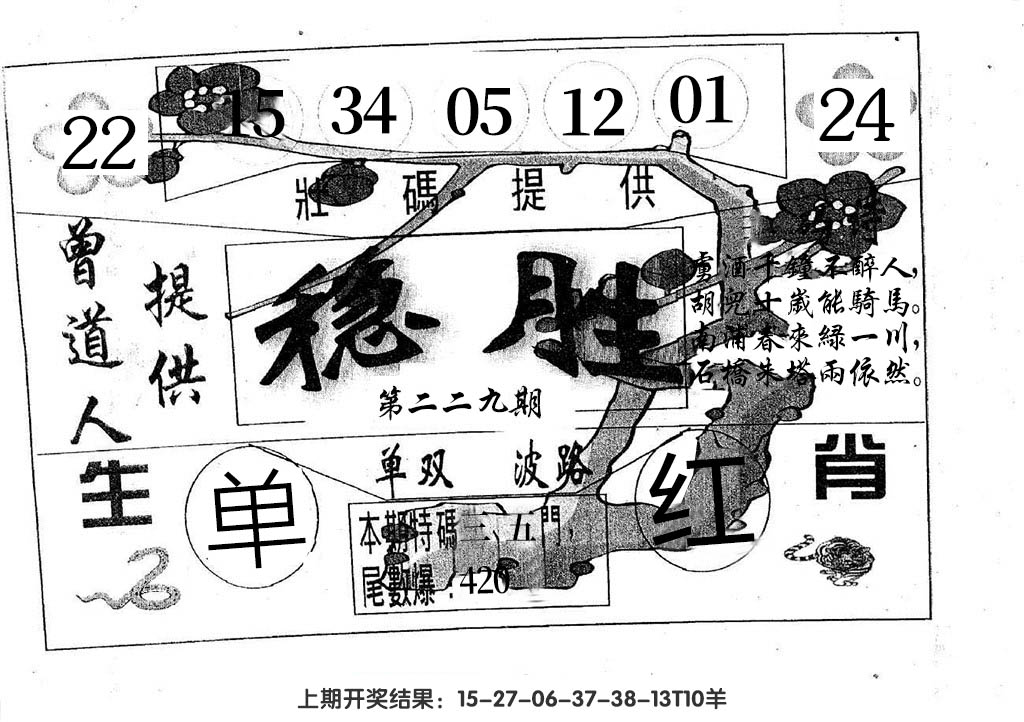 22 15 34 05 12 01 24
壯碼提供
曾道人
提供
稳胜
第二二九期
虜酒千鐘不醉人，
胡兒十歲能騎馬。
南浦春來綠一川，
石橋朱塔兩依然。
单双 波路
生肖
单
红
本期特碼三、五門，
尾數爆：420
上期开奖结果：15-27-06-37-38-13T10羊